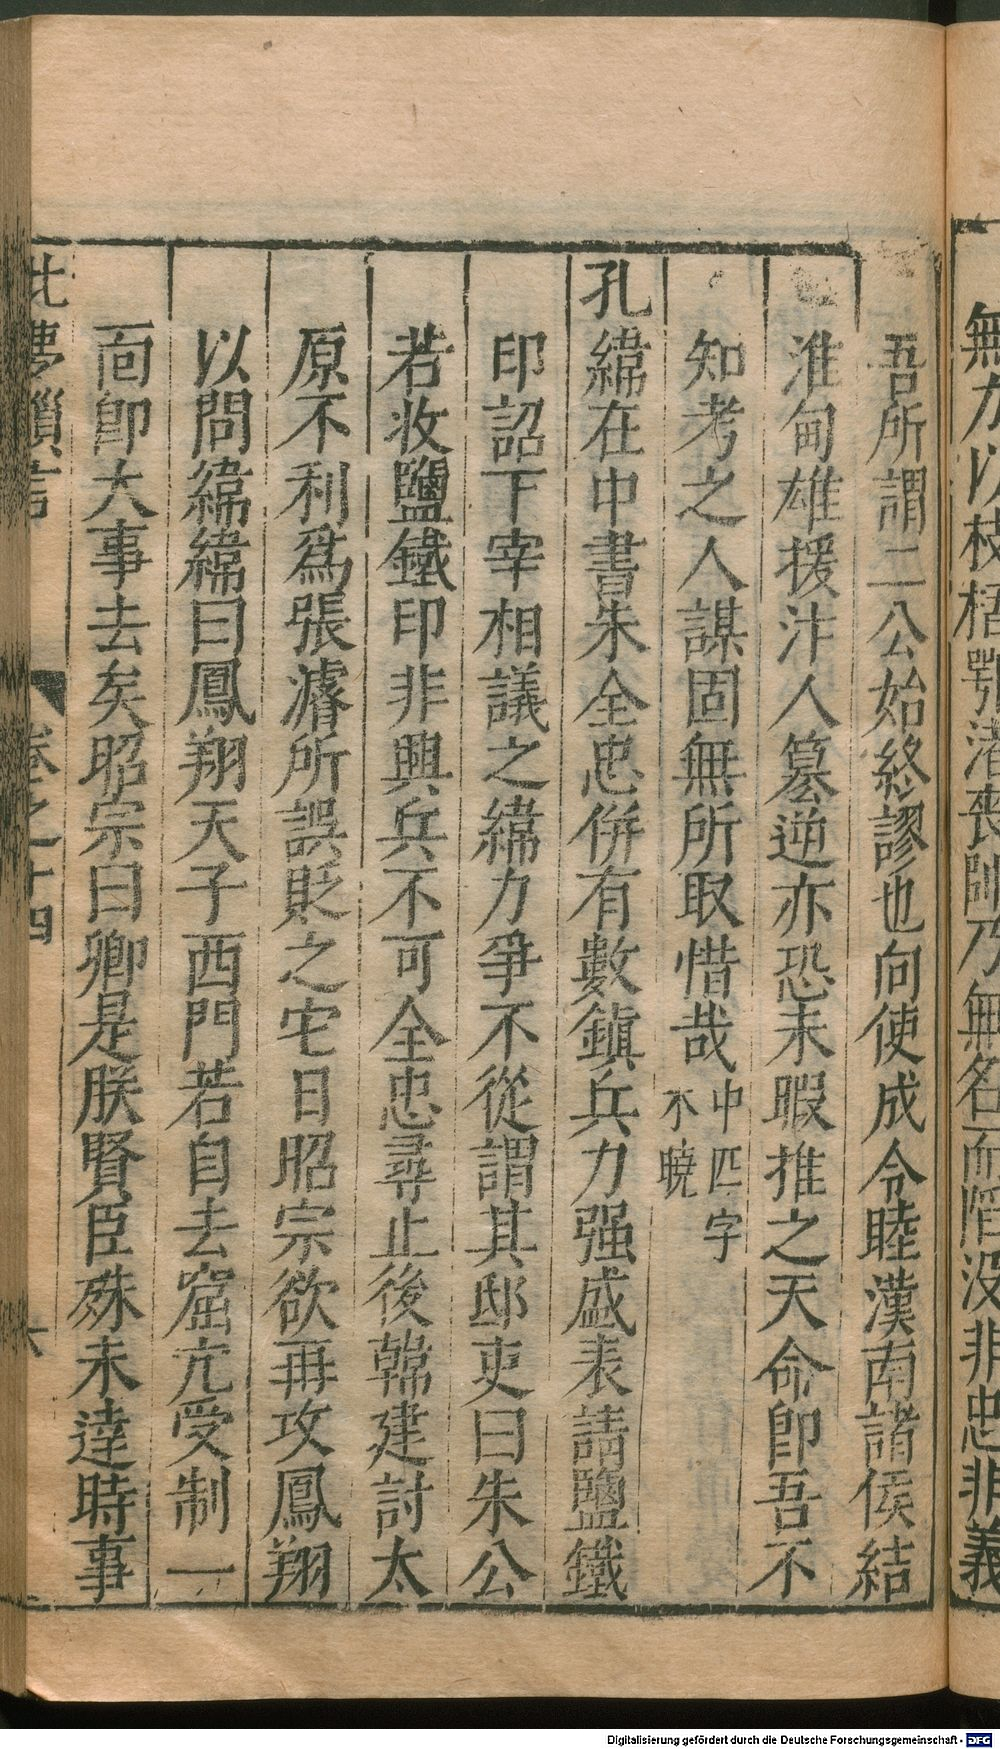 無力以枝梧鄂渚喪師乃無名而陷没非忠非義
吾所謂二公始終謬也向使成令睦漢南諸侯結
淮甸雄援汴人簒逆亦恐未暇推之天命卽吾不
知考之人謀固無所取惜哉中匹字不曉
孔緯在中書朱全忠併有數鎮兵力强盛表請鹽鐵
印詔下宰相議之緯力爭不從謂其邸吏曰朱公
若收鹽鐵印非興兵不可全忠尋止後韓建討太
原不利爲張濬所誤貶之它日昭宗欲再攻鳳翔
以問緯緯曰鳳翔天子西門若自去窟宂受制一
面卽大事去矣昭宗曰卿是朕賢臣殊未達時事
北夢瑣言 卷之十四 六
Digitalisierung gefördert durch die Deutsche Forschungsgemeinschaft - DFG